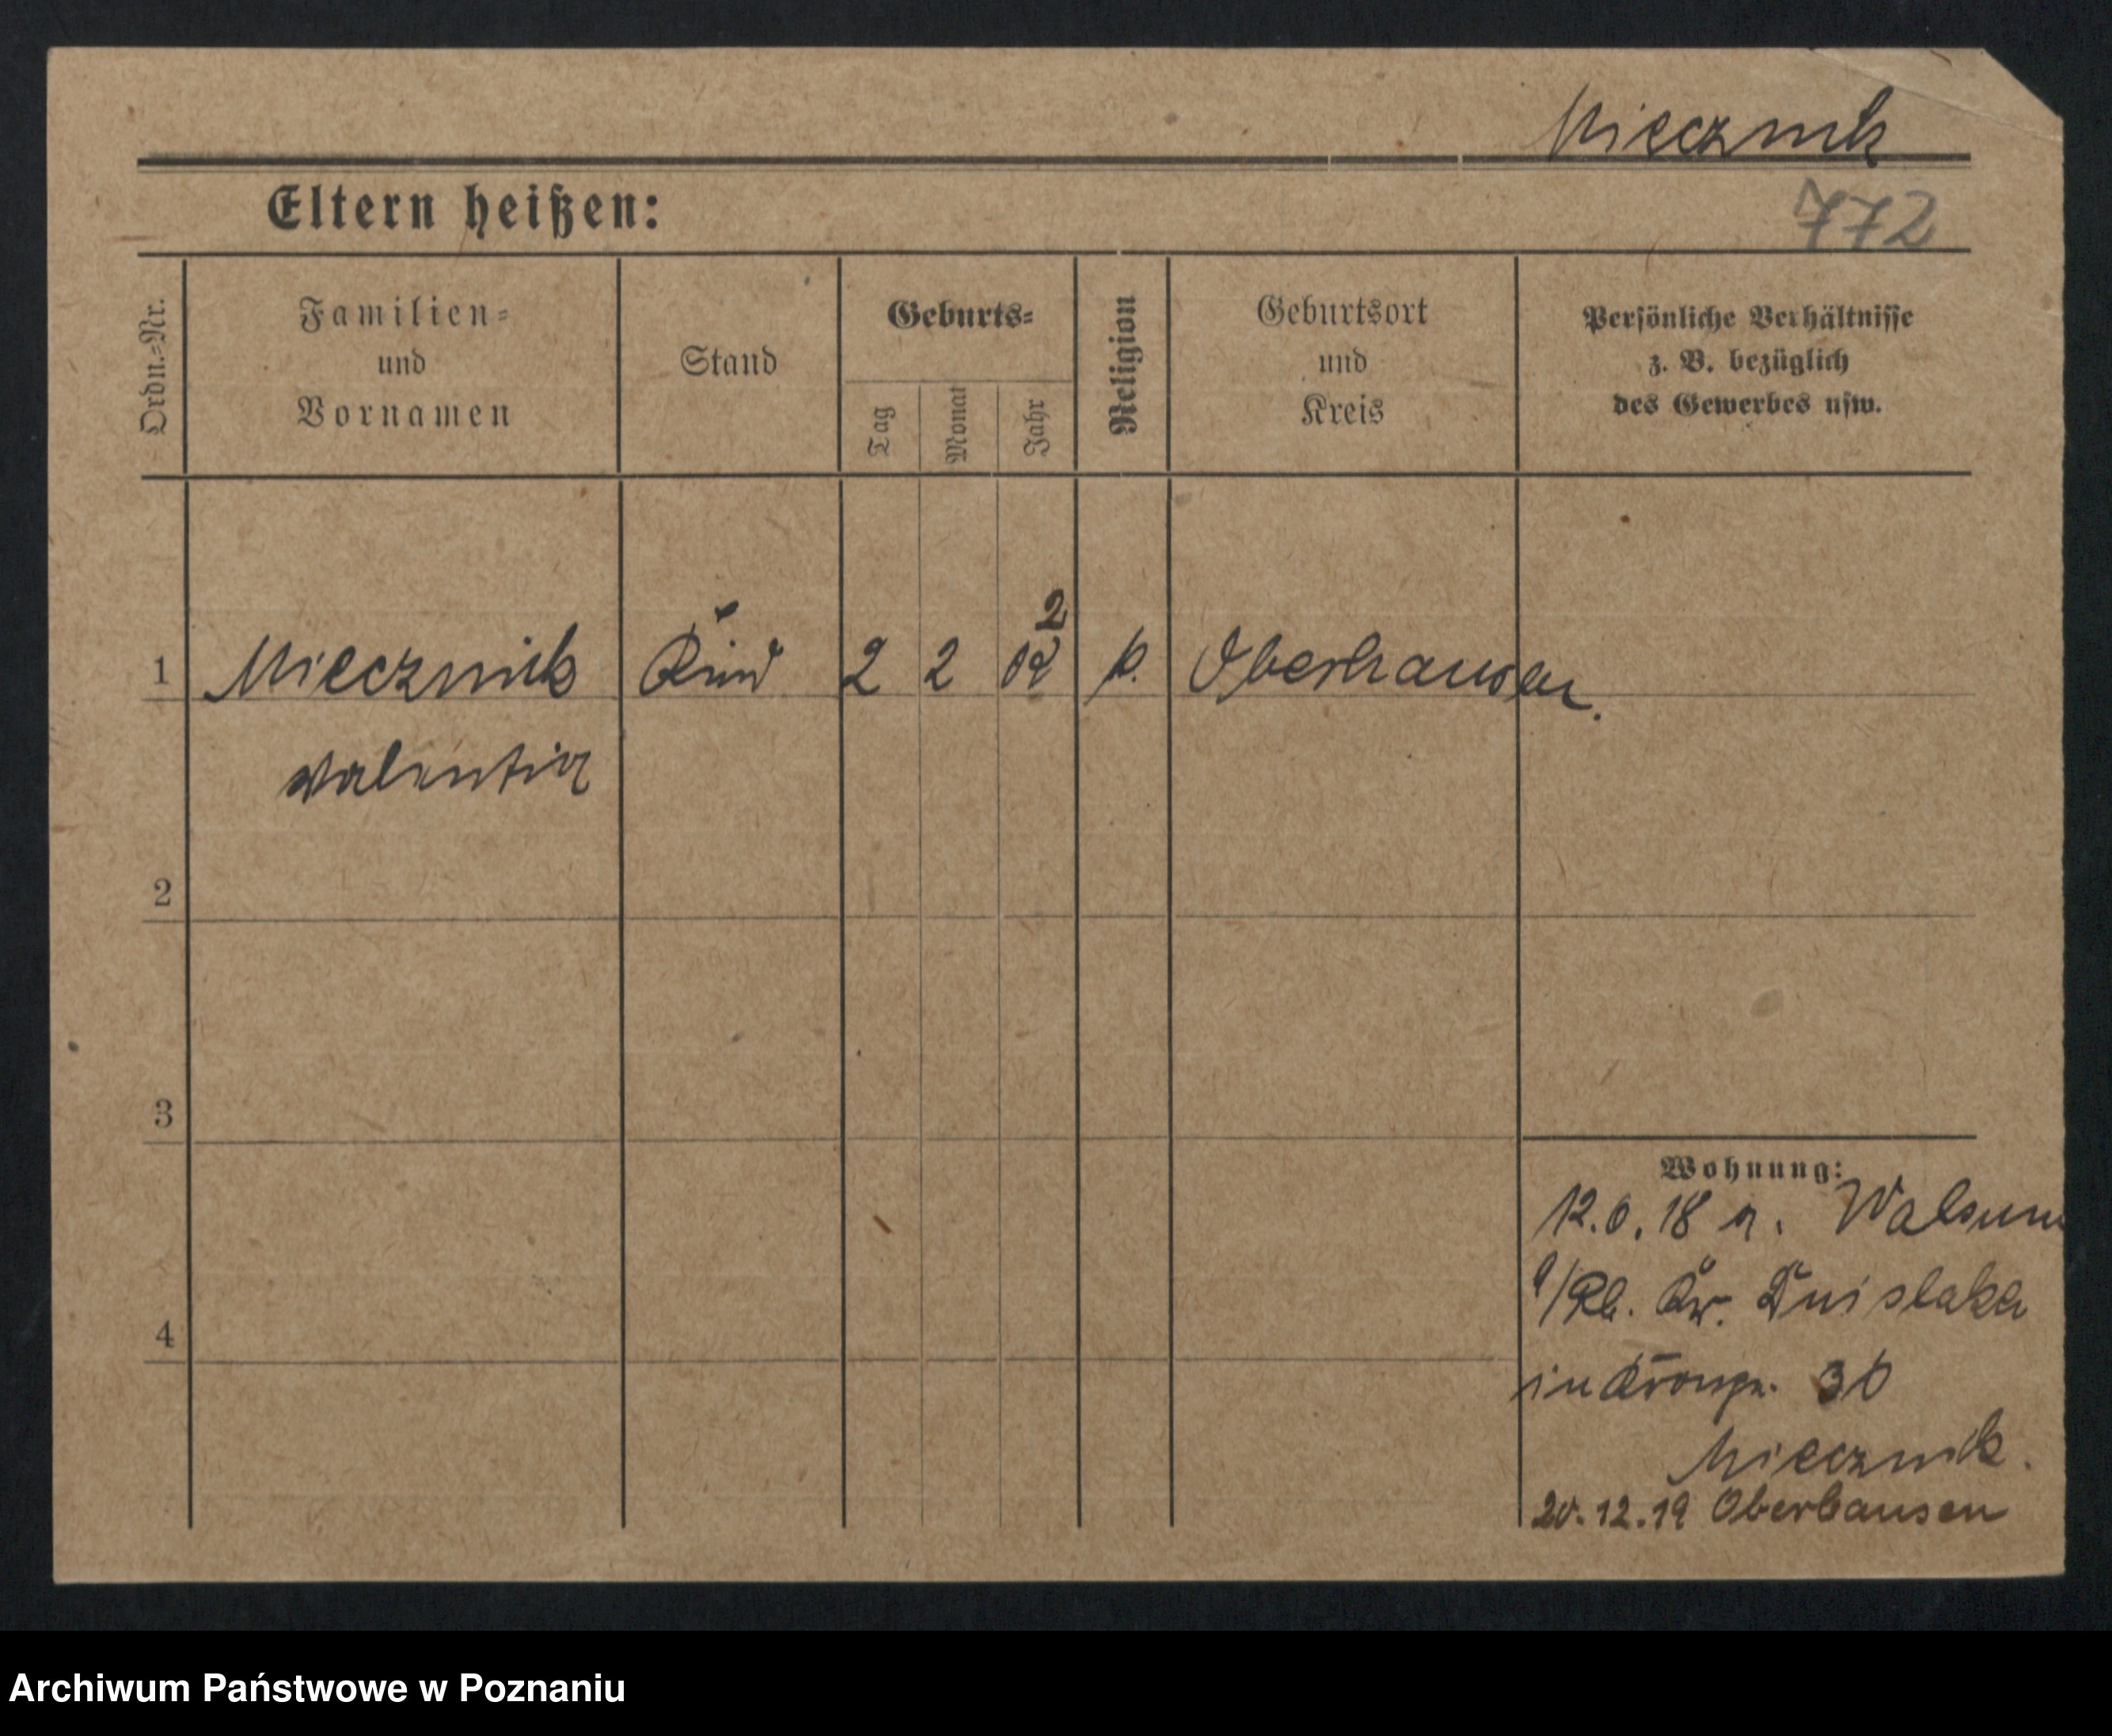 Miecznik
Eltern heißen:
772
Ordn.-Nr.
Familien-
und
Vornamen
Stand
Geburts-
Tag
Monat
Jahr
Religion
Geburtsort
und
Kreis
Persönliche Verhältnisse
z. B. bezüglich
des Gewerbes usw.
1 Miecznik Kind 2 2 k. Oberhausen.
Valentin
2
3
4
Wohnung:
12.6.18 n. Walsum
a/Rh. Kr.
in 36
Miecznik.
20.12.19 Oberhausen
Archiwum Państwowe w Poznaniu